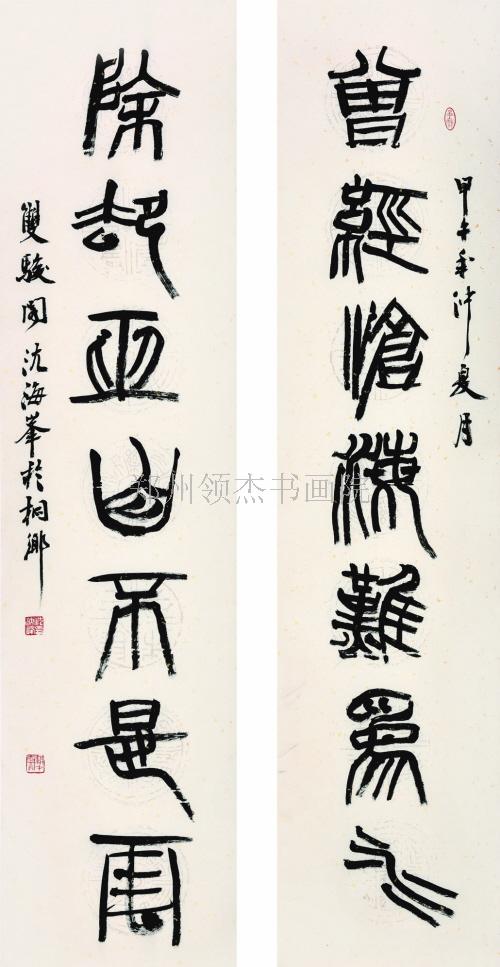 甲午年仲夏月
曾經滄海難爲水
除却巫山不是雲
雙駿閣沈海峯於桐鄉
郑州领杰书画院